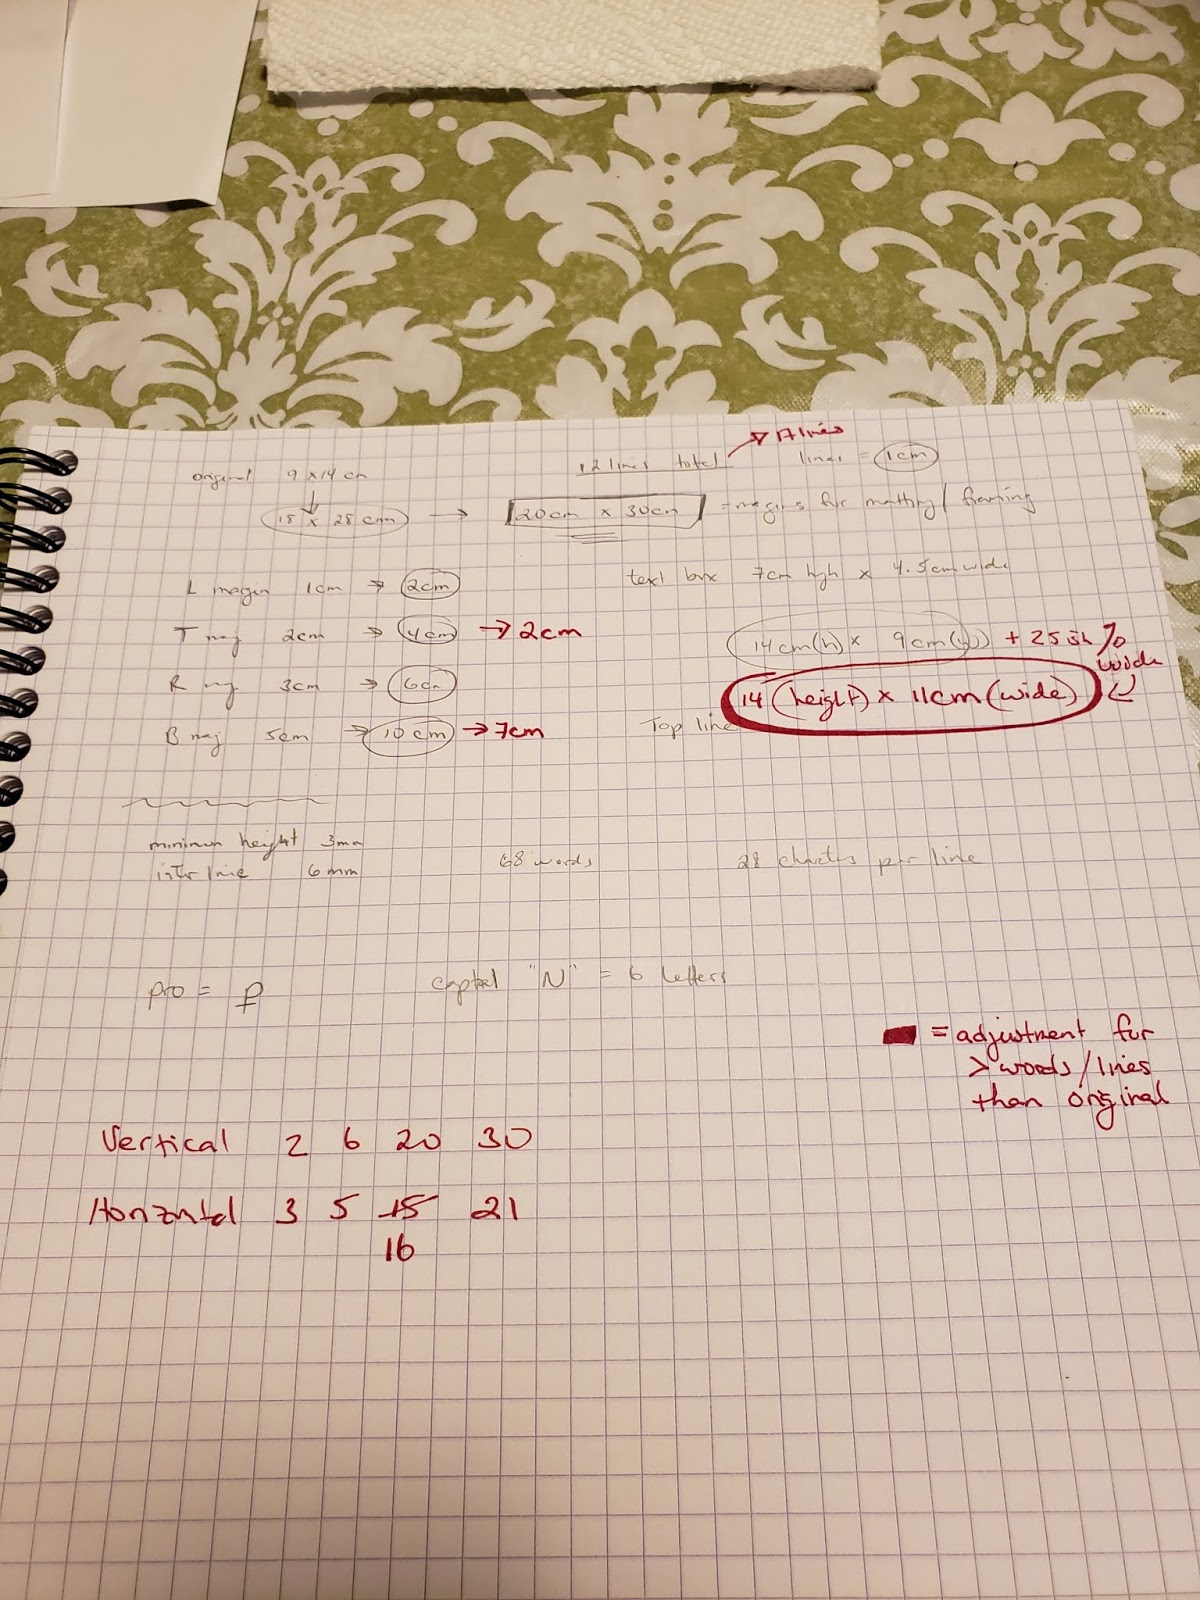 original 9 x 14 cm
12 lines total → 17 lines
lines = 1cm
↓
18 x 28 cm → 20cm x 30cm = margins for matting / framing
L margin 1cm → 2cm
text box 7cm high x 4.5cm wide
T marg 2cm → 4cm → 2cm
14cm(h) x 9cm(w) + 25ish % wide
R marg 3cm → 6cm
14 (height) x 11cm (wide)
B marg 5cm → 10cm → 7cm
Top line
minimum height 3mm
interline 6mm
68 words
28 characters per line
pro = p
capital "N" = 6 letters
= adjustment for
> words/lines
than original
Vertical 2 6 20 30
Horizontal 3 5 15 21
16